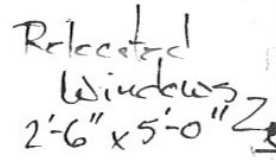 Relocated
Windows
2'-6" x 5'-0"